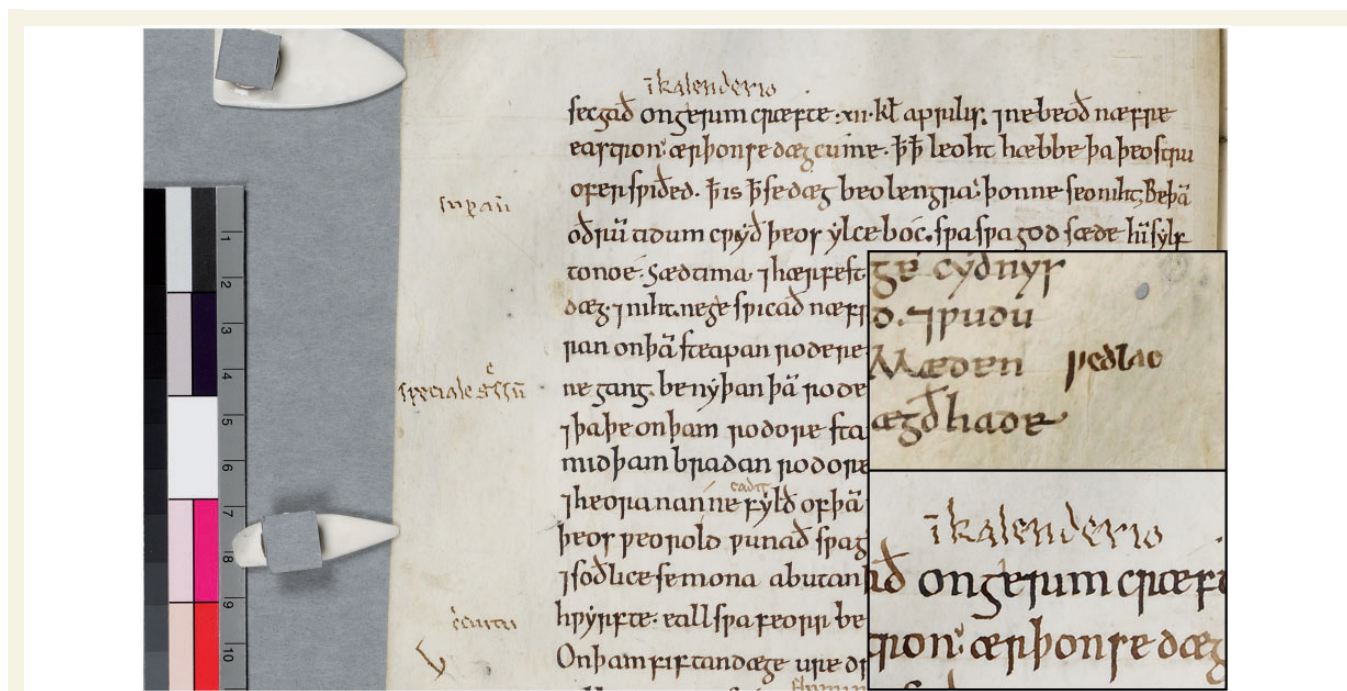 ī kalenderio
secgað on gerimcræfte .xii. kł aprilis. ⁊ ne beoð næfre
eastron. ær þon se dæg cume. ꝥꝥ leoht hæbbe þa þeostru
oferswiðed. ꝥ is ꝥ se dæg beo lengra. þonne seo niht; Be þā
oðrū tidum cƿyð þeos ylce boc. sƿa sƿa god sæde hī sylf
to noe. Sædtima ⁊ hærfest
dæg. ⁊ niht. ne gesƿicað næfr
ran on þā steapan rodere
speciale
ne gang. benyþan þā rode
⁊ þa þe on þam rodore sta
mid þam bradan rodore
cadit
⁊ heora nan ne fylð of þā
þeos ƿeorold ƿunað sƿa g
⁊ soðlice se mona abutan
hƿyrfte. eall sƿa feorr be
On þam fiftan dæge ure dr
1
2
3
4
5
6
7
8
9
10
ge cyðnys
ð. ⁊ ƿudu
Mæden ƿedlac
ægðhade
ī kalenderio
að on gerimcræft
tron. ær þon se dæg